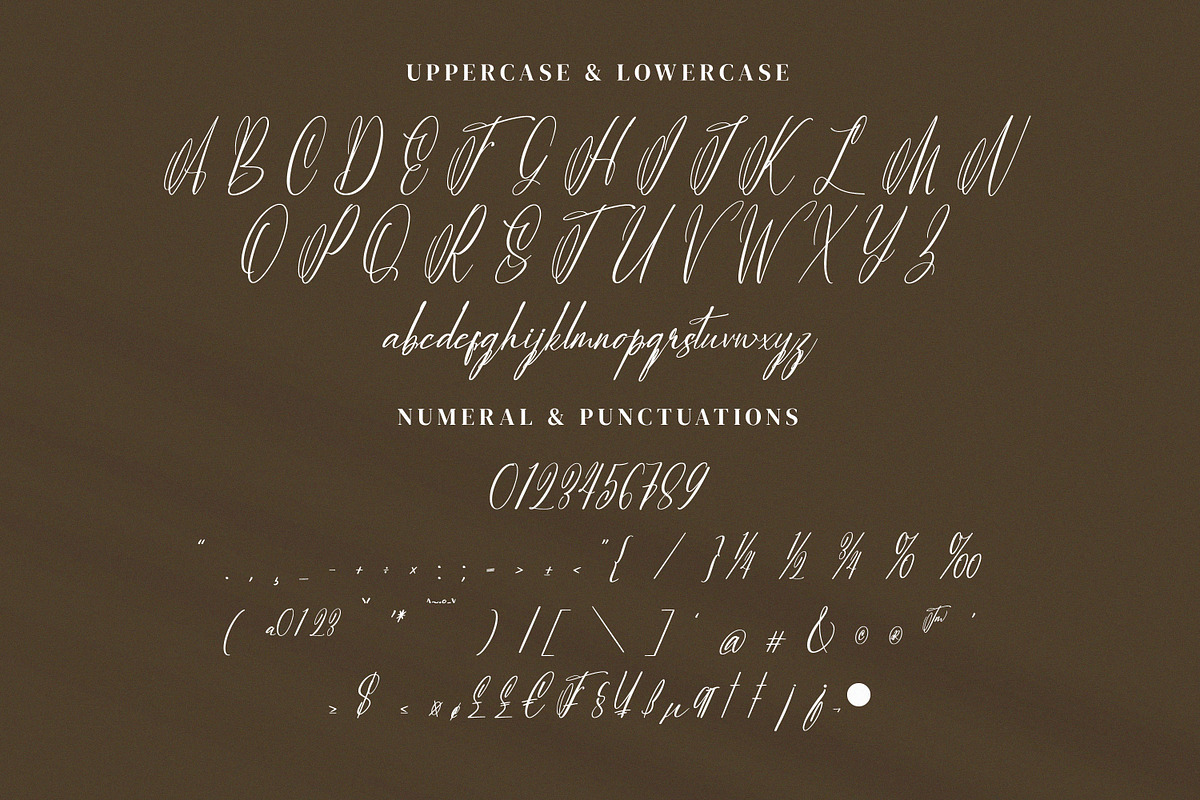 UPPERCASE & LOWERCASE
A B C D E F G H I J K L M N
O P Q R S T U V W X Y Z
abcdefghijklmnopqrstuvwxyz
NUMERAL & PUNCTUATIONS
0123456789
“ . , ¸ _ − + ÷ × : ; = > ± < ” { / } ¼ ½ ¾ % ‰
( a0123 ' * ) | [ \ ] ‘ @ # & © ® ™ ’
≥ $ ≤ ¤ ¢ £ £ € F § ¥ μ † ‡ j